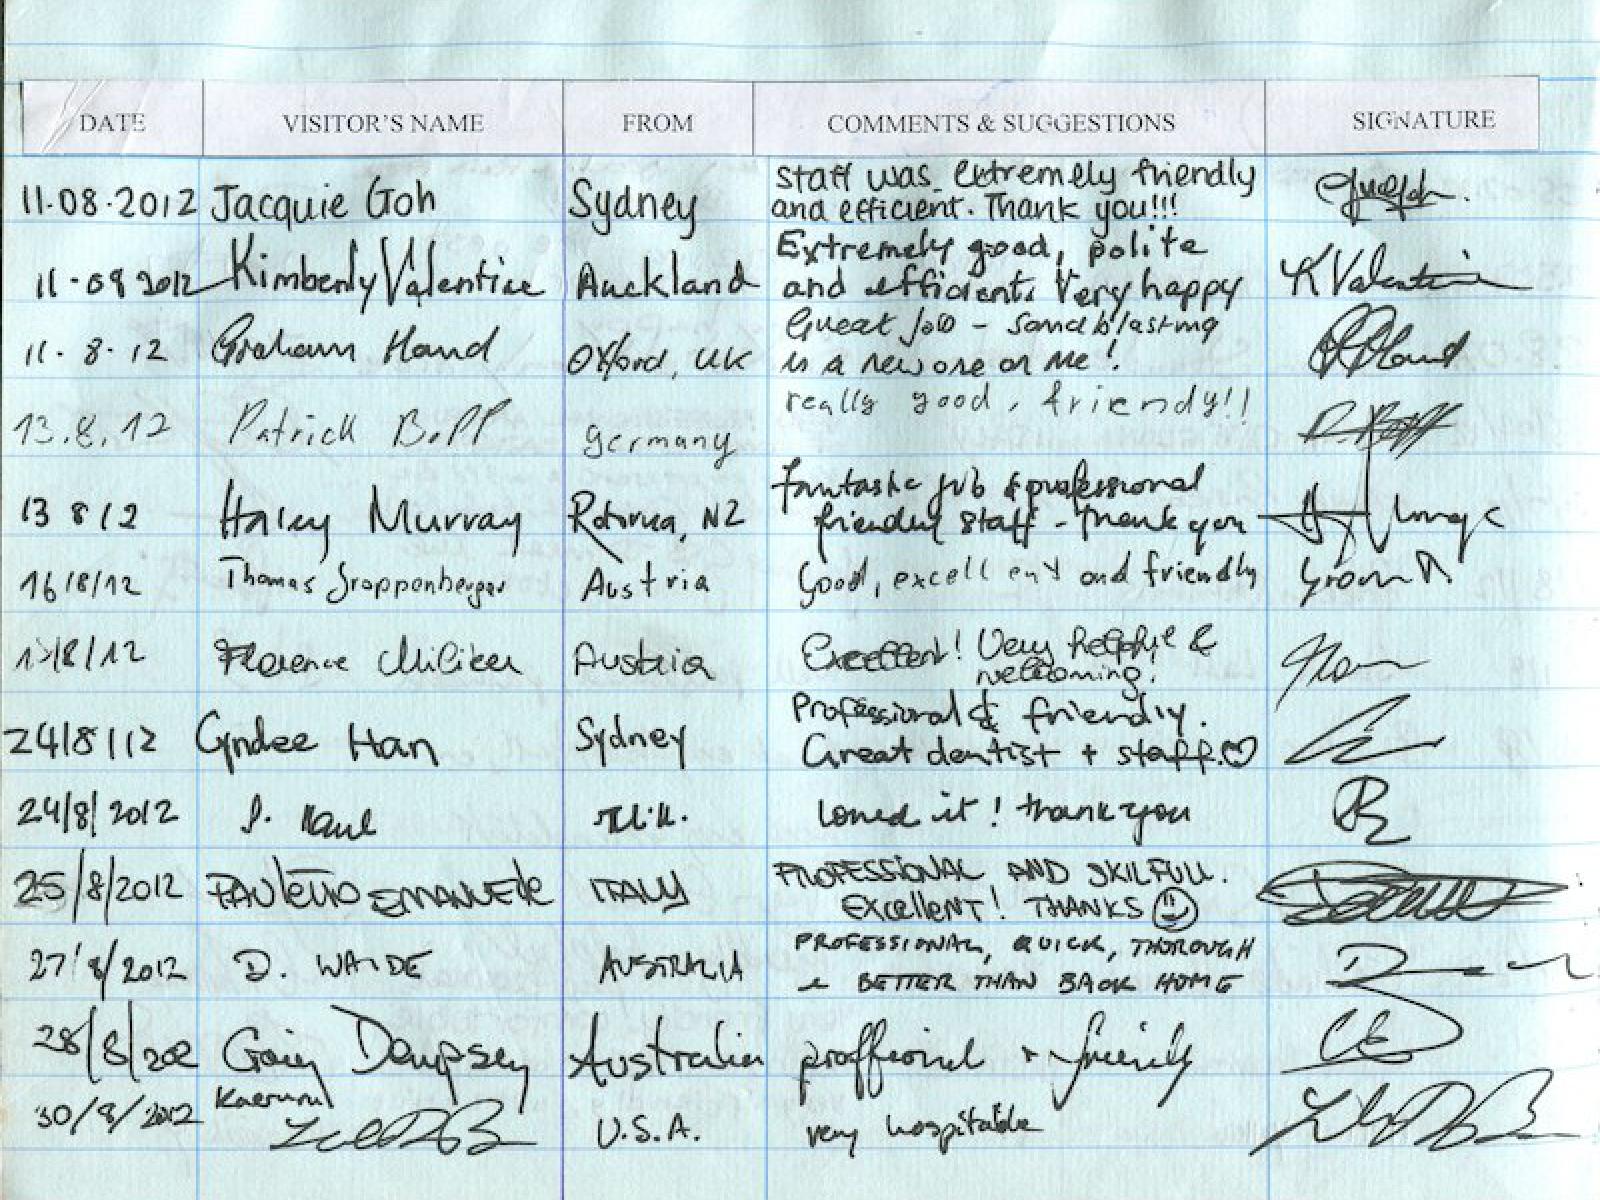 DATE VISITOR'S NAME FROM COMMENTS & SUGGESTIONS SIGNATURE
11.08.2012 Jacquie Goh Sydney Staff was extremely friendly
and efficient. Thank you!!!
11-08 2012 Kimberly Valentine Auckland Extremely good, polite
and efficient. Very happy K Valentine
11-8-12 Graham Hand Oxford, UK Great job - sandblasting
is a new one on me!
13.8.12 Patrick Bopp Germany really good, friendy!!
13 8 12 Haley Murray Rotorua, NZ Fantastic job & professional
friendly staff - thank you
16/8/12 Thomas Austria Good, excellent and friendly
/8/12 Florence Austria Excellent! Very helpful &
welcoming!
24/8/12 Cyndee Han Sydney Professional & friendly.
Great dentist + staff.♡
24/8/2012 Loved it! thank you
25/8/2012 PAULETTO EMANUELE ITALY PROFESSIONAL AND SKILFULL.
EXCELLENT! THANKS ☺
27/8/2012 D. WAIDE AUSTRALIA PROFESSIONAL, QUICK, THOROUGH
& BETTER THAN BACK HOME
28/8/202 Craig Dempsey Australia proffional + frienly
30/8/2012 U.S.A. very hospitable